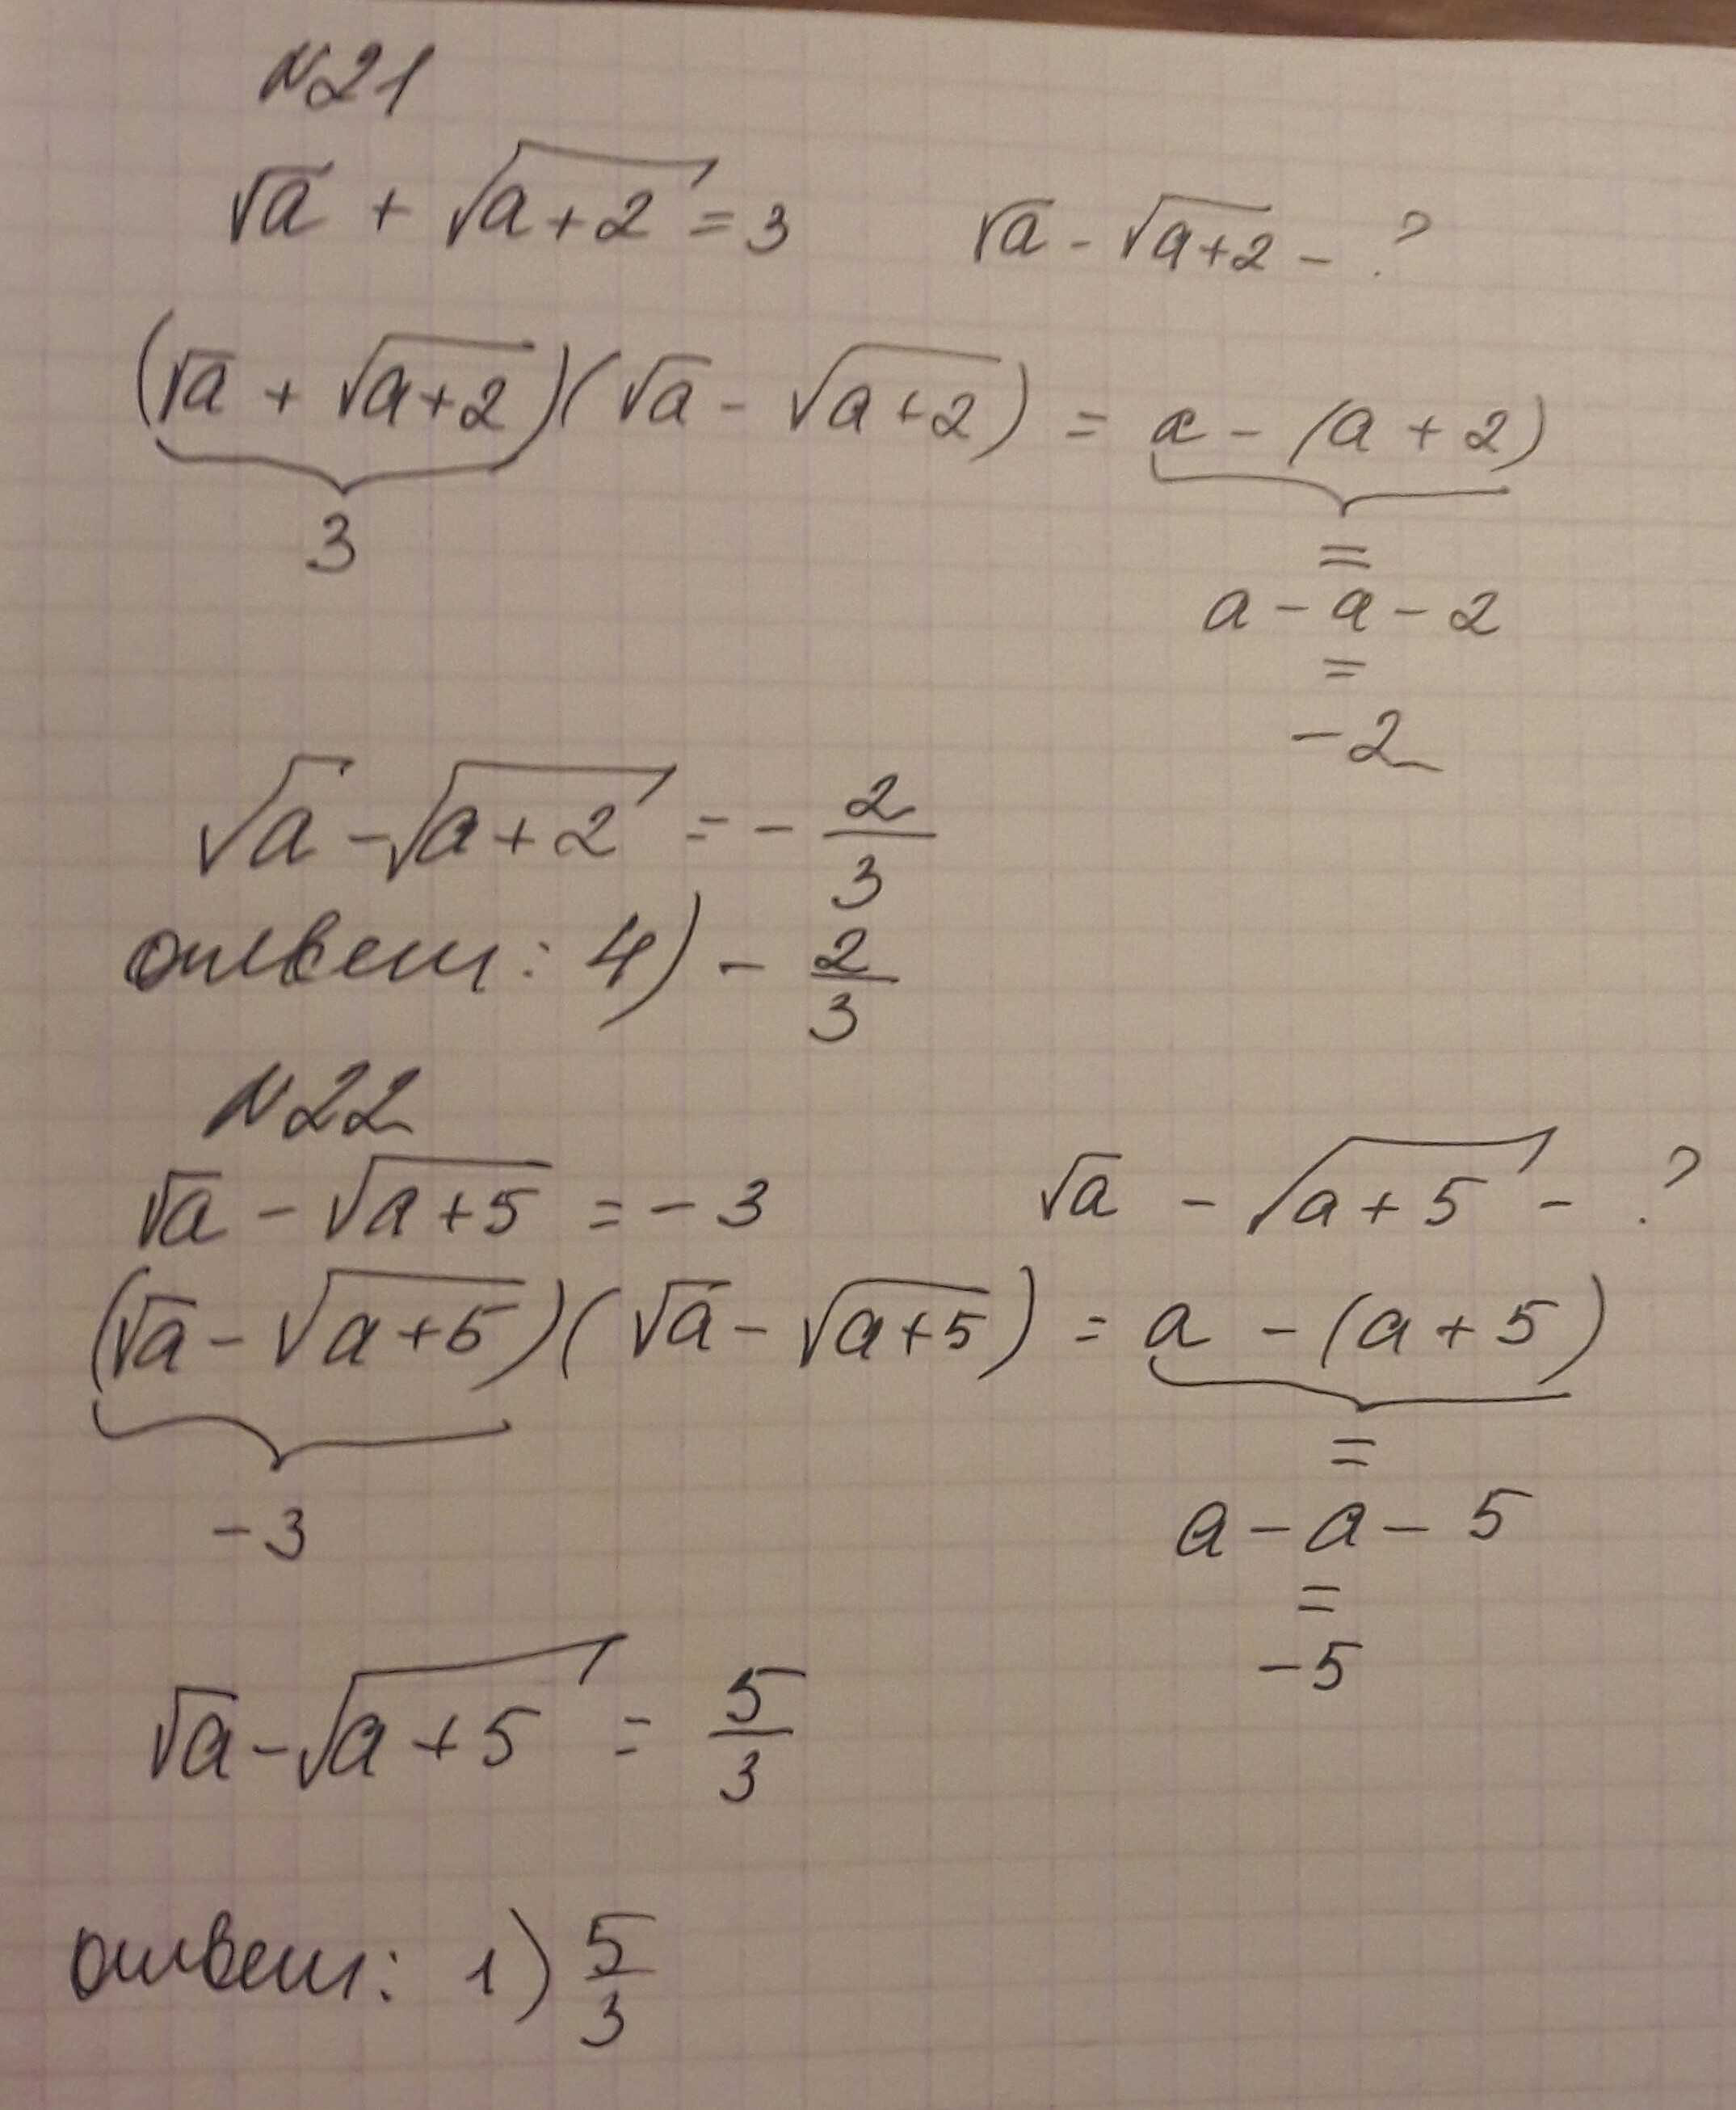 №21
√a + √(a+2) = 3   √a - √(a+2) - ?
(√a + √(a+2))(√a - √(a+2)) = a - (a+2)
3
=
a - a - 2
=
-2
√a - √(a+2) = - 2/3
ответ: 4) - 2/3
№22
√a - √(a+5) = -3   √a - √(a+5) - ?
(√a - √(a+5))(√a - √(a+5)) = a - (a+5)
-3
=
a - a - 5
=
-5
√a - √(a+5) = 5/3
ответ: 1) 5/3